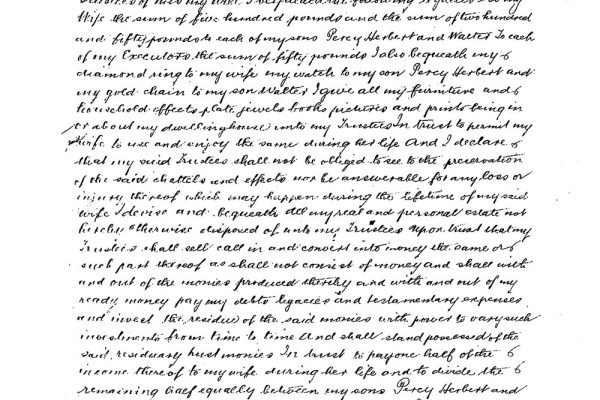 Wife the sum of five hundred pounds and the sum of two hundred
and fifty pounds to each of my sons Percy Herbert and Walter To each
of my Executors the sum of fifty pounds I also bequeath my
diamond ring to my wife my watch to my son Percy Herbert and
my gold chain to my son Walter I give all my furniture and
household effects plate jewels books pictures and prints being in
or about my dwellinghouse unto my Trustees In trust to permit my
wife to use and enjoy the same during her life And I declare
that my said Trustees shall not be obliged to see to the preservation
of the said chattels and effects nor be answerable for any loss or
injury thereof which may happen during the lifetime of my said
wife I devise and bequeath all my real and personal estate not
hereby otherwise disposed of unto my Trustees Upon trust that my
Trustees shall sell call in and convert into money the same or
such part thereof as shall not consist of money and shall with
and out of the monies produced thereby and with and out of my
ready money pay my debts legacies and testamentary expenses
and invest the residue of the said monies with power to vary such
investments from time to time And shall stand possessed of the
said residuary trust monies In trust to pay one half of the
income thereof to my wife during her life and to divide the
remaining half equally between my sons Percy Herbert and